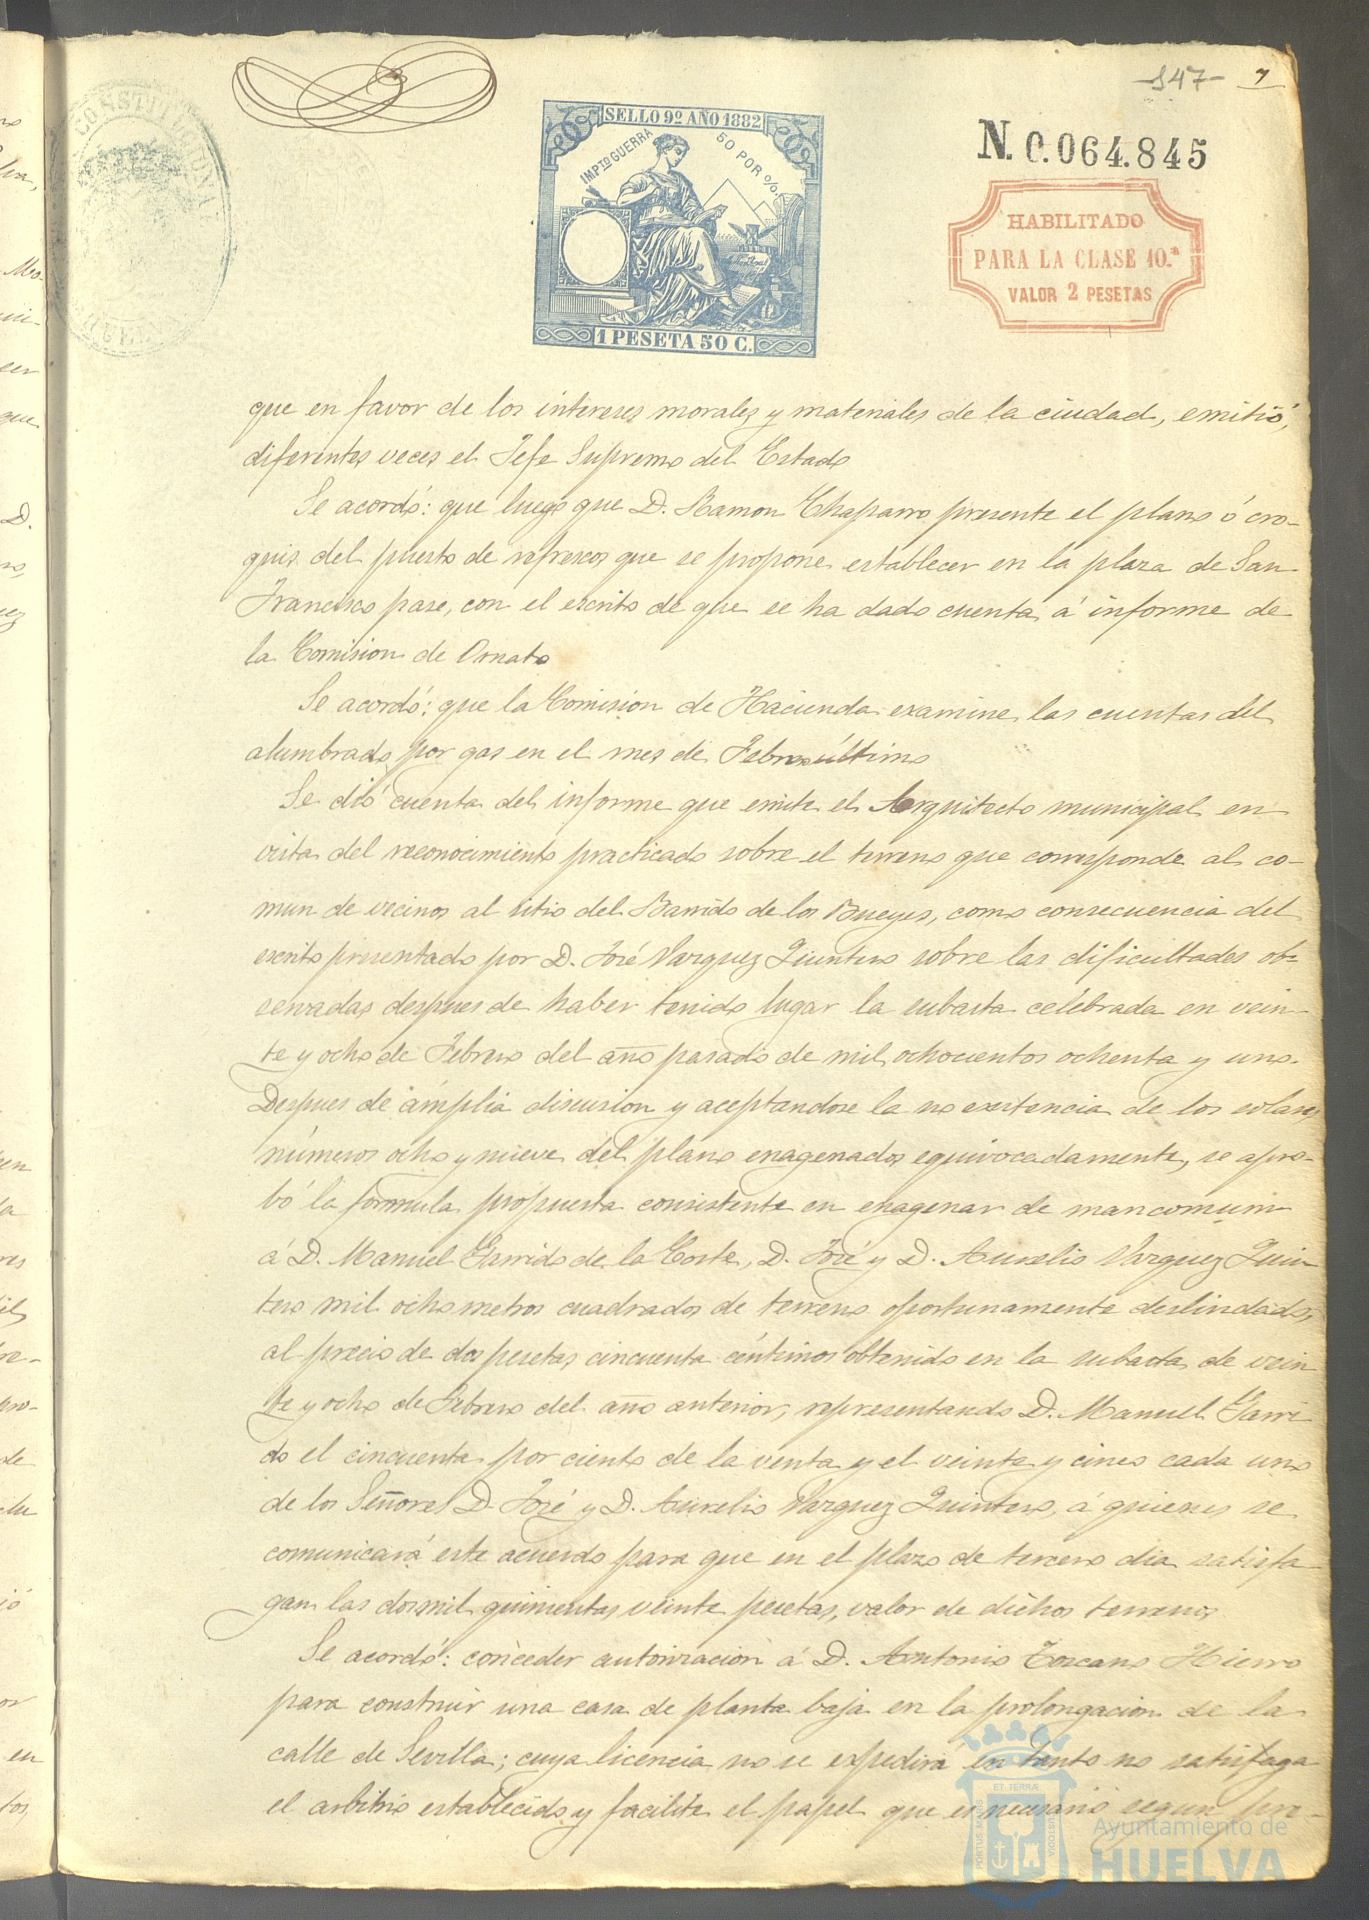 -947- 7
CONSTITUCIONAL
HUELVA
SELLO 9º AÑO 1882
IMPTO GUERRA 50 POR %.
1 PESETA 50 C.
N. 0.064.845
HABILITADO
PARA LA CLASE 10.ª
VALOR 2 PESETAS
que en favor de los intereses morales y materiales de la ciudad, emitió,
diferentes veces el Jefe Supremo del Estado
Se acordó: que luego que D. Ramon Chaparro presente el plano ó cro-
quis del puesto de refrescos que se propone establecer en la plaza de San
Francisco pase, con el escrito de que se ha dado cuenta á informe de
la Comision de Ornato
Se acordó: que la Comision de Hacienda examine las cuentas del
alumbrado por gas en el mes de Febrero último
Se dió cuenta del informe que emite el Arquitecto municipal en
vista del reconocimiento practicado sobre el terreno que corresponde al co-
mun de vecinos al sitio del Barrido de los Bueyes, como consecuencia del
escrito presentado por D. José Vazquez Quintero sobre las dificultades ob-
servadas despues de haber tenido lugar la subasta celebrada en vein-
te y ocho de Febrero del año pasado de mil ochocientos ochenta y uno.
Despues de ámplia discusion y aceptandose la no existencia de los solares
números ocho y nueve del plano enagenados equivocadamente, se apro-
bó la formula propuesta consistente en enagenar de mancomun
á D. Manuel Garrido de la Corte, D. José y D. Aurelio Vazquez Quin
tero mil ocho metros cuadrados de terreno oportunamente deslindado,
al precio de dos pesetas cincuenta céntimos obtenido en la subasta de vein
te y ocho de Febrero del año anterior, representando D. Manuel Garri
do el cincuenta por ciento de la venta y el veinte y cinco cada uno
de los Señores D. José y D. Aurelio Vazquez Quintero, á quienes se
comunicará este acuerdo para que en el plazo de tercero dia satisfa
gan las dos mil quinientas veinte pesetas, valor de dichos terrenos
Se acordó: conceder autorizacion á D. Antonio Toscano Hierro
para construir una casa de planta baja en la prolongacion de la
calle de Sevilla; cuya licencia no se expedirá en tanto no satisfaga
el arbitrio establecido y facilite el papel que es necesario segun pre-
PORTUS MARIS ET TERRÆ CUSTODIA
Ayuntamiento de
HUELVA